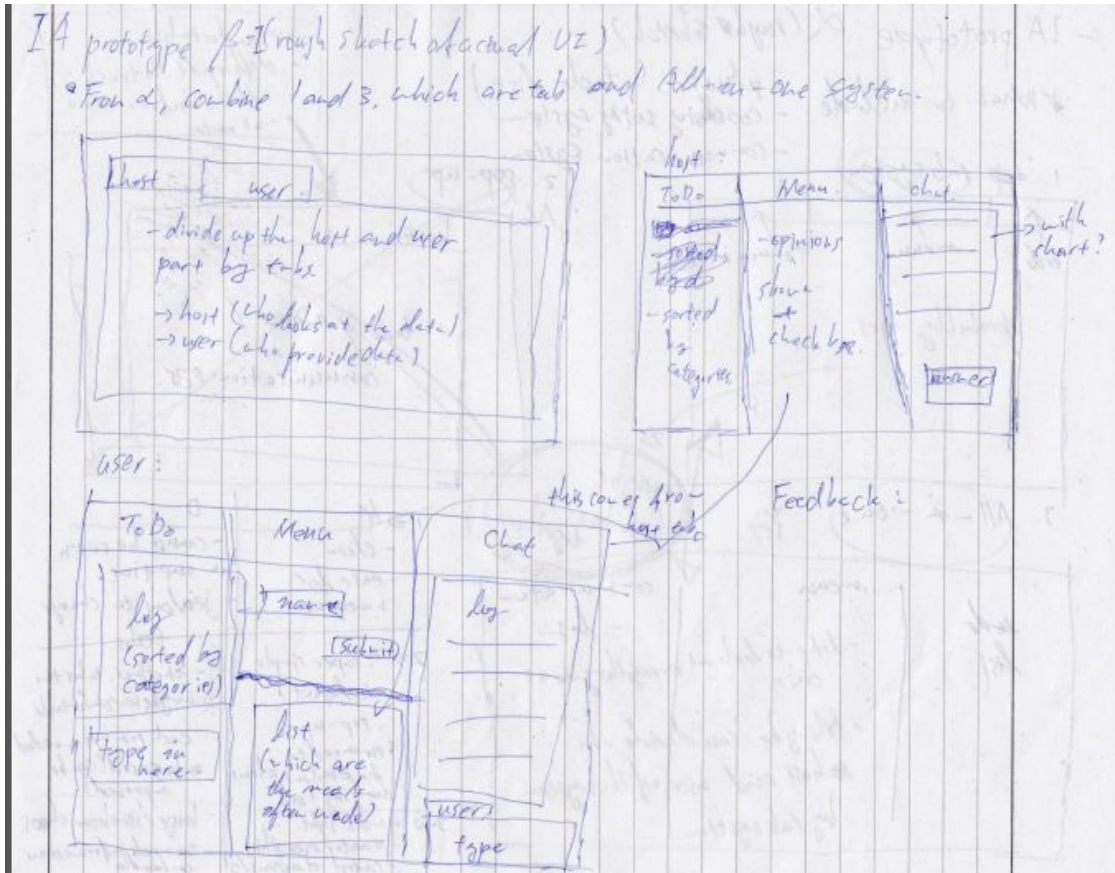 IA prototype β-I (rough sketch of actual UI)
• From α, combine 1 and 3. which are tab and All-in-one system.
host
user
- divide up the host and user
part by tabs.
→ host (who looks at the data)
→ user (who provide data)
host:
ToDo
Menu
chat
- sorted
by
categories
- opinions
shown
+
check box.
→ with
chart?
user:
this comes from
host tab
Feedback:
ToDo
Menu
Chat
log
(sorted by
categories)
type in
here
name
(submit)
list
(which are
the meals
often made)
log
users
type